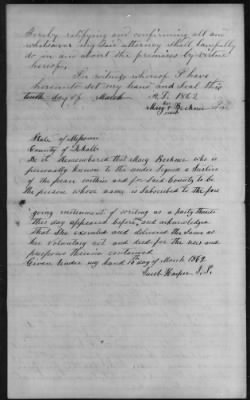 hereby ratifying and confirming all an
whatsoever my said attorney shall lawfully
do in an about the premises by virtue
hereof.
In witness whereof I have
hereunto set my hand and seal this
tenth day of March A.D. 1862
her
Mary X Beckner Seal
mark
State of Missouri
County of Dekalb
Be it Remembered that Mary Beckner who is
personally known to the under signed a Justice
of the peace within and for Said County to be
the person whose name is Subscribed to the fore
going instrument of writing as a party thereto
this day appeared before and acknowledged
that She executed and delivered the same as
her voluntary act and deed for the uses and
purposes therein contained
Given under my hand 10 day of March 1862
Jacob Harper J.P.